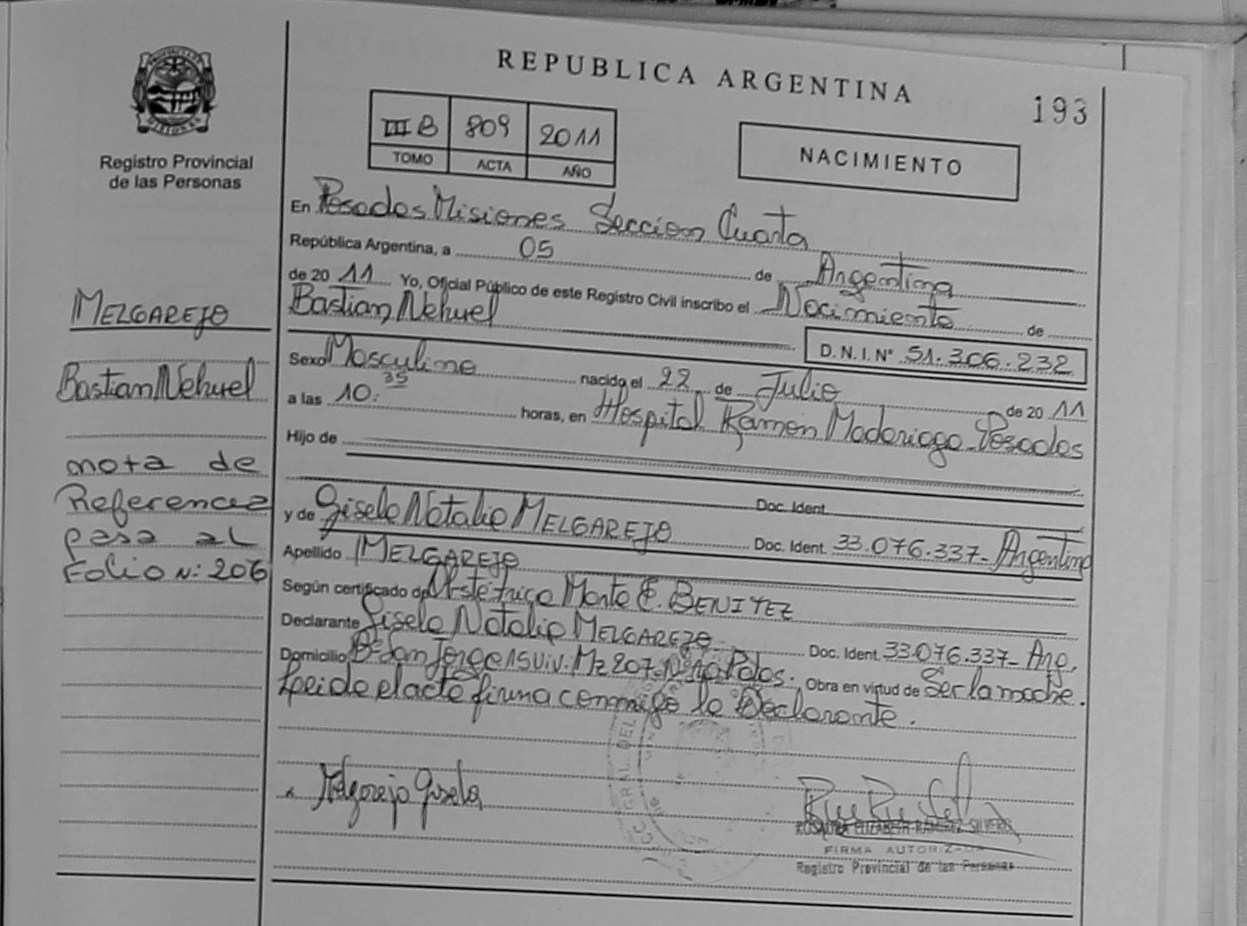 REPUBLICA ARGENTINA
193
Registro Provincial
de las Personas
III B 809 2011
TOMO ACTA AÑO
NACIMIENTO
En Posadas Misiones Seccion Cuarta
República Argentina, a 05 de Argentina
de 20 11 Yo, Oficial Público de este Registro Civil inscribo el Nacimiento de
Bastian Nehuel
D.N.I. Nº 51.306.232
Sexo Masculino nacido el 22 de Julio de 20 11
a las 10:35 horas, en Hospital Ramon Madariaga Posadas
Hijo de
Doc. Ident.
y de Gisela Natalia MELGAREJO Doc. Ident. 33.076.337- Argentina
Apellido MELGAREJO
Según certificado de Obstétrica Marta E. BENITEZ
Declarante Gisela Natalia MELGAREJO Doc. Ident. 33.076.337- Arg.
Domicilio Bº San Jorge 15 Viv. Mz 207 Nº Pdas. Obra en virtud de Ser la madre.
Leida el acta firma conmigo la Declarante.
Melgarejo Gisela
ROSAURA ELIZABETH RAMIREZ SILVERO
FIRMA AUTORIZADA
Registro Provincial de las Personas
MELGAREJO
Bastian Nehuel
nota de
Referencia
pasa al
Folio Nº: 206